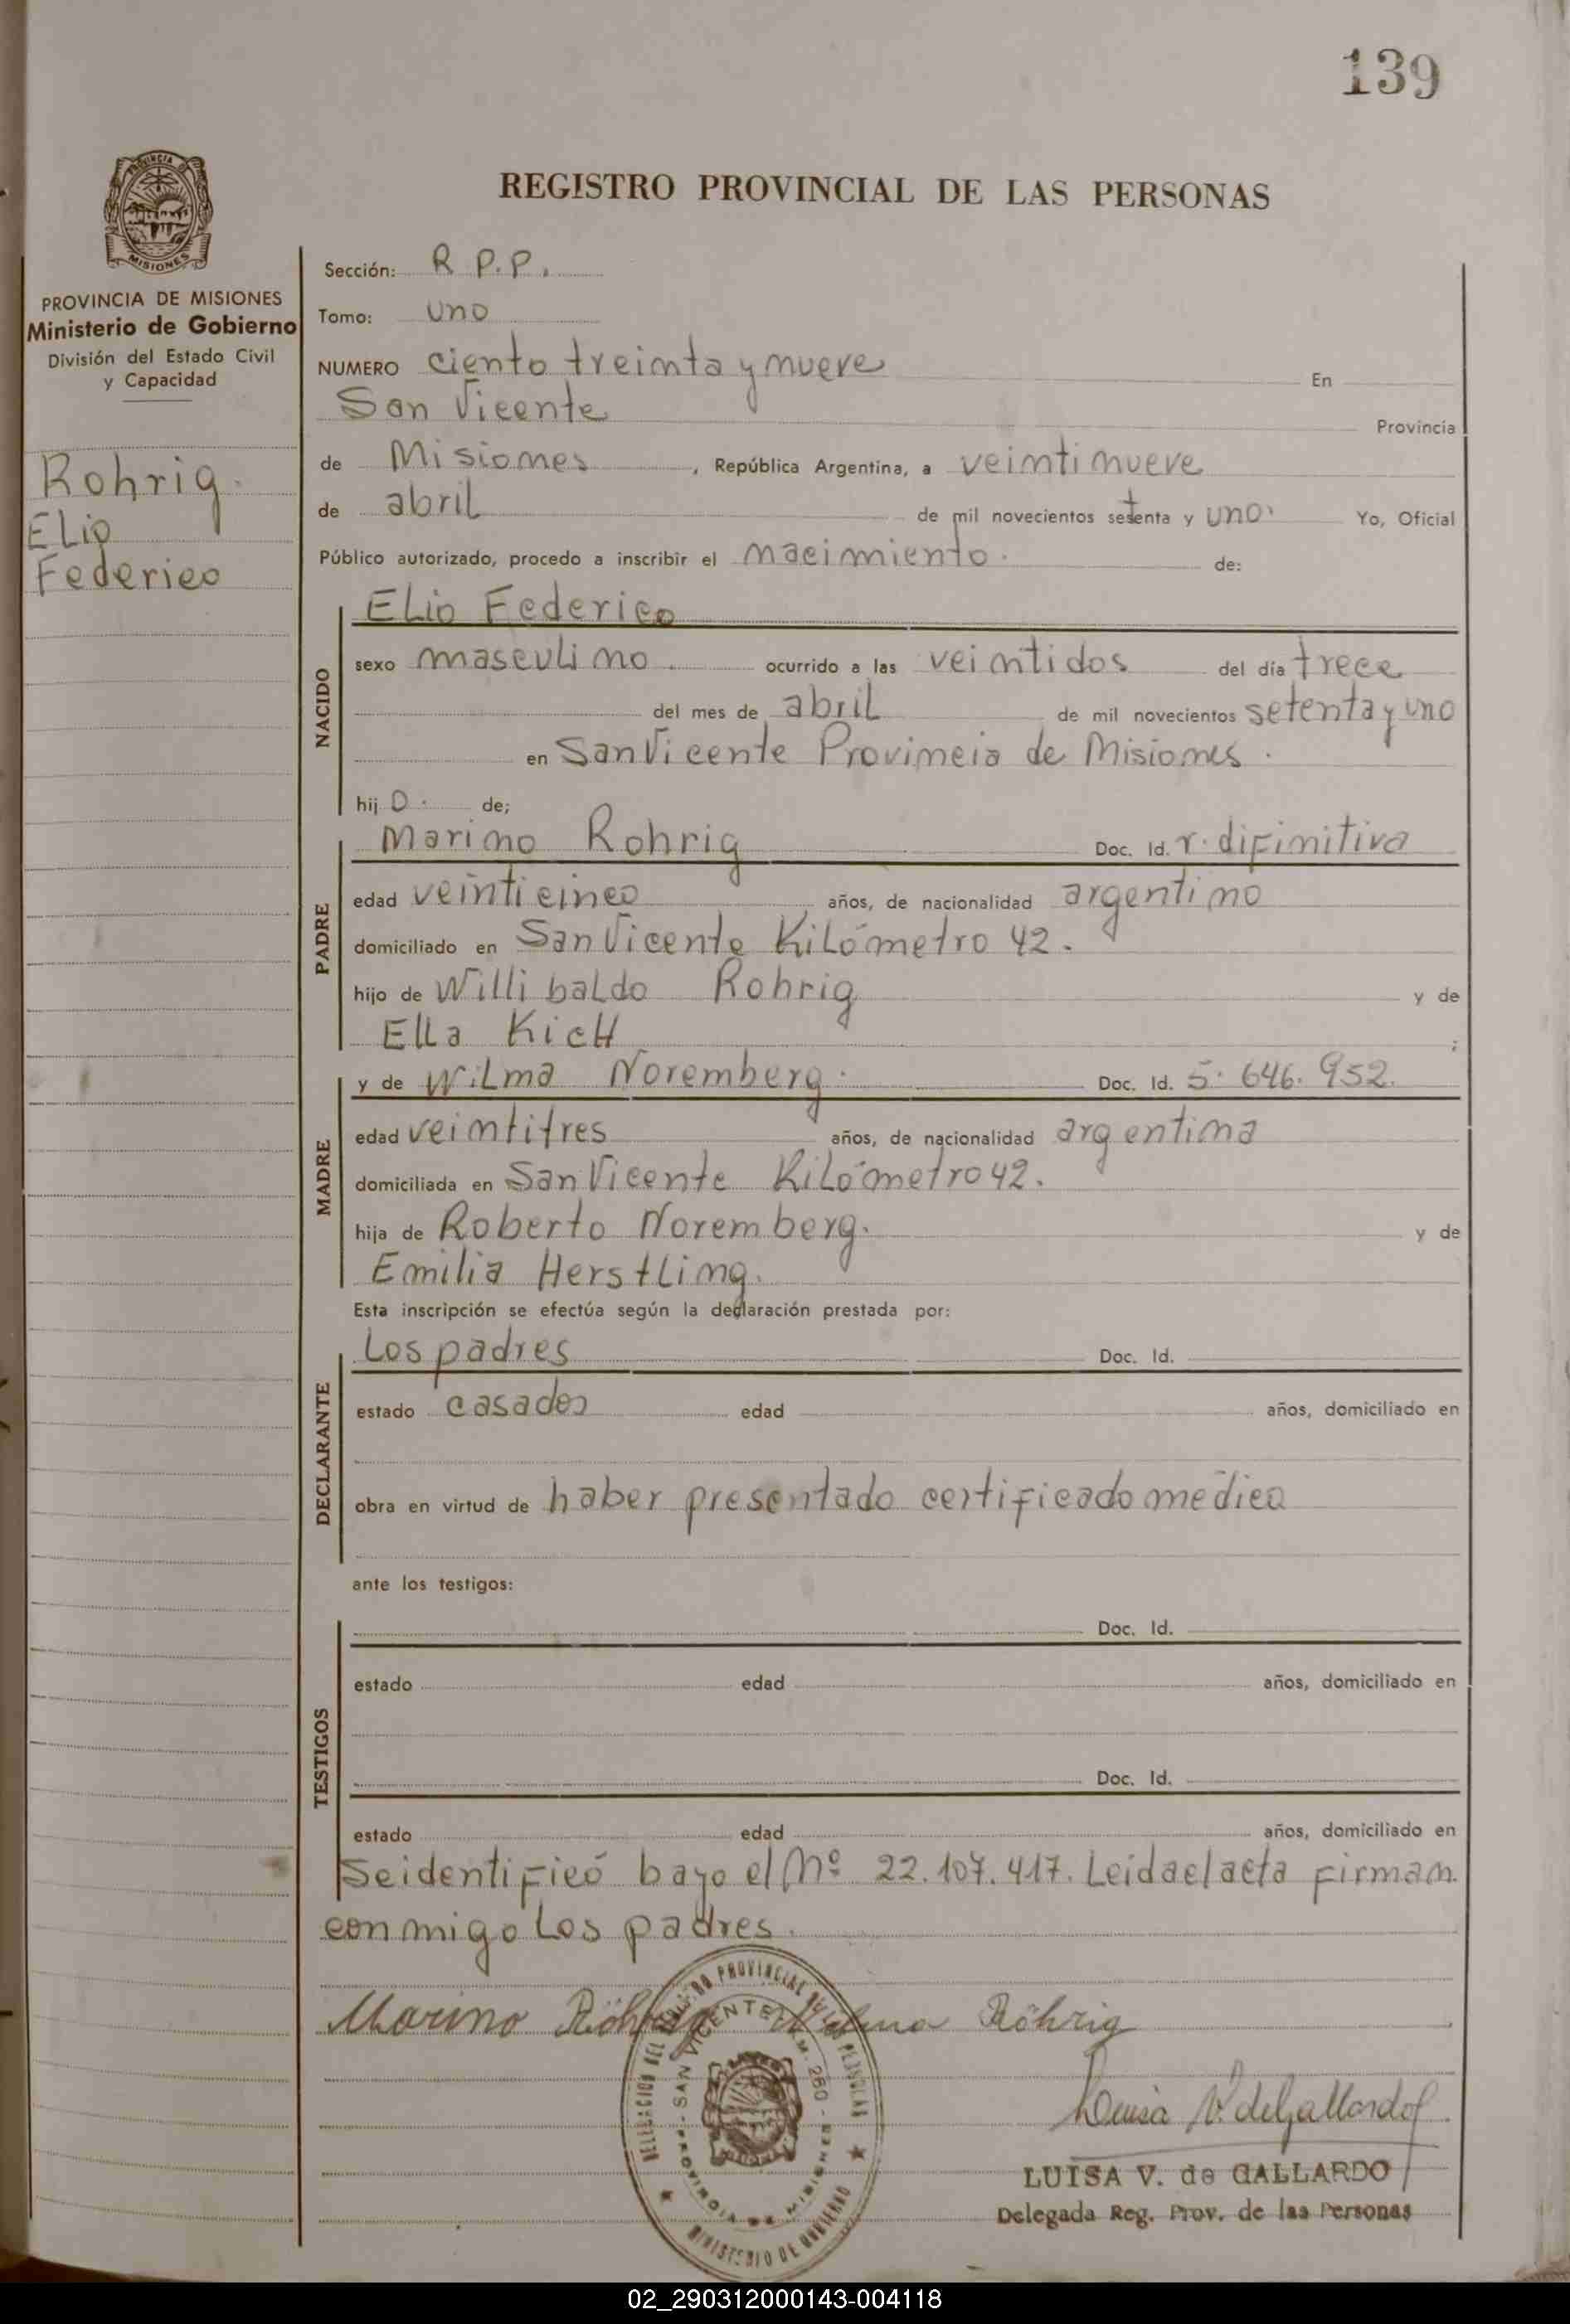 139
PROVINCIA DE
MISIONES
PROVINCIA DE MISIONES
Ministerio de Gobierno
División del Estado Civil
y Capacidad
Rohrig.
Elio
Federico
REGISTRO PROVINCIAL DE LAS PERSONAS
Sección: R P.P.
Tomo: uno
NUMERO ciento treinta y nueve En
San Vicente Provincia
de Misiones, República Argentina, a veintinueve
de abril de mil novecientos setenta y uno. Yo, Oficial
Público autorizado, procedo a inscribir el nacimiento. de:
NACIDO
Elio Federico
sexo masculino. ocurrido a las veintidos del día trece
del mes de abril de mil novecientos setenta y uno
en San Vicente Provincia de Misiones.
hij o. de;
PADRE
Marino Rohrig Doc. Id. r. difinitiva
edad veinticinco años, de nacionalidad argentino
domiciliado en San Vicente Kilómetro 42.
hijo de Willibaldo Rohrig y de
Ella Kich ;
MADRE
y de Wilma Noremberg. Doc. Id. 5.646.952.
edad veintitres años, de nacionalidad argentina
domiciliada en San Vicente Kilómetro 42.
hija de Roberto Noremberg. y de
Emilia Herstling.
Esta inscripción se efectúa según la declaración prestada por:
DECLARANTE
Los padres Doc. Id.
estado casados edad años, domiciliado en
obra en virtud de haber presentado certificado médico
ante los testigos:
TESTIGOS
Doc. Id.
estado edad años, domiciliado en
Doc. Id.
estado edad años, domiciliado en
Se identificó bajo el Nº 22.107.417. Leida el acta firman
conmigo los padres.
Marino Röhrig Wilma Röhrig
DELEGACION DEL REGISTRO PROVINCIAL DE LAS PERSONAS
SAN VICENTE KM. 260
PROVINCIA DE MISIONES
MINISTERIO DE GOBIERNO
Luisa V. de Gallardo
LUISA V. de GALLARDO
Delegada Reg. Prov. de las Personas
02_290312000143-004118